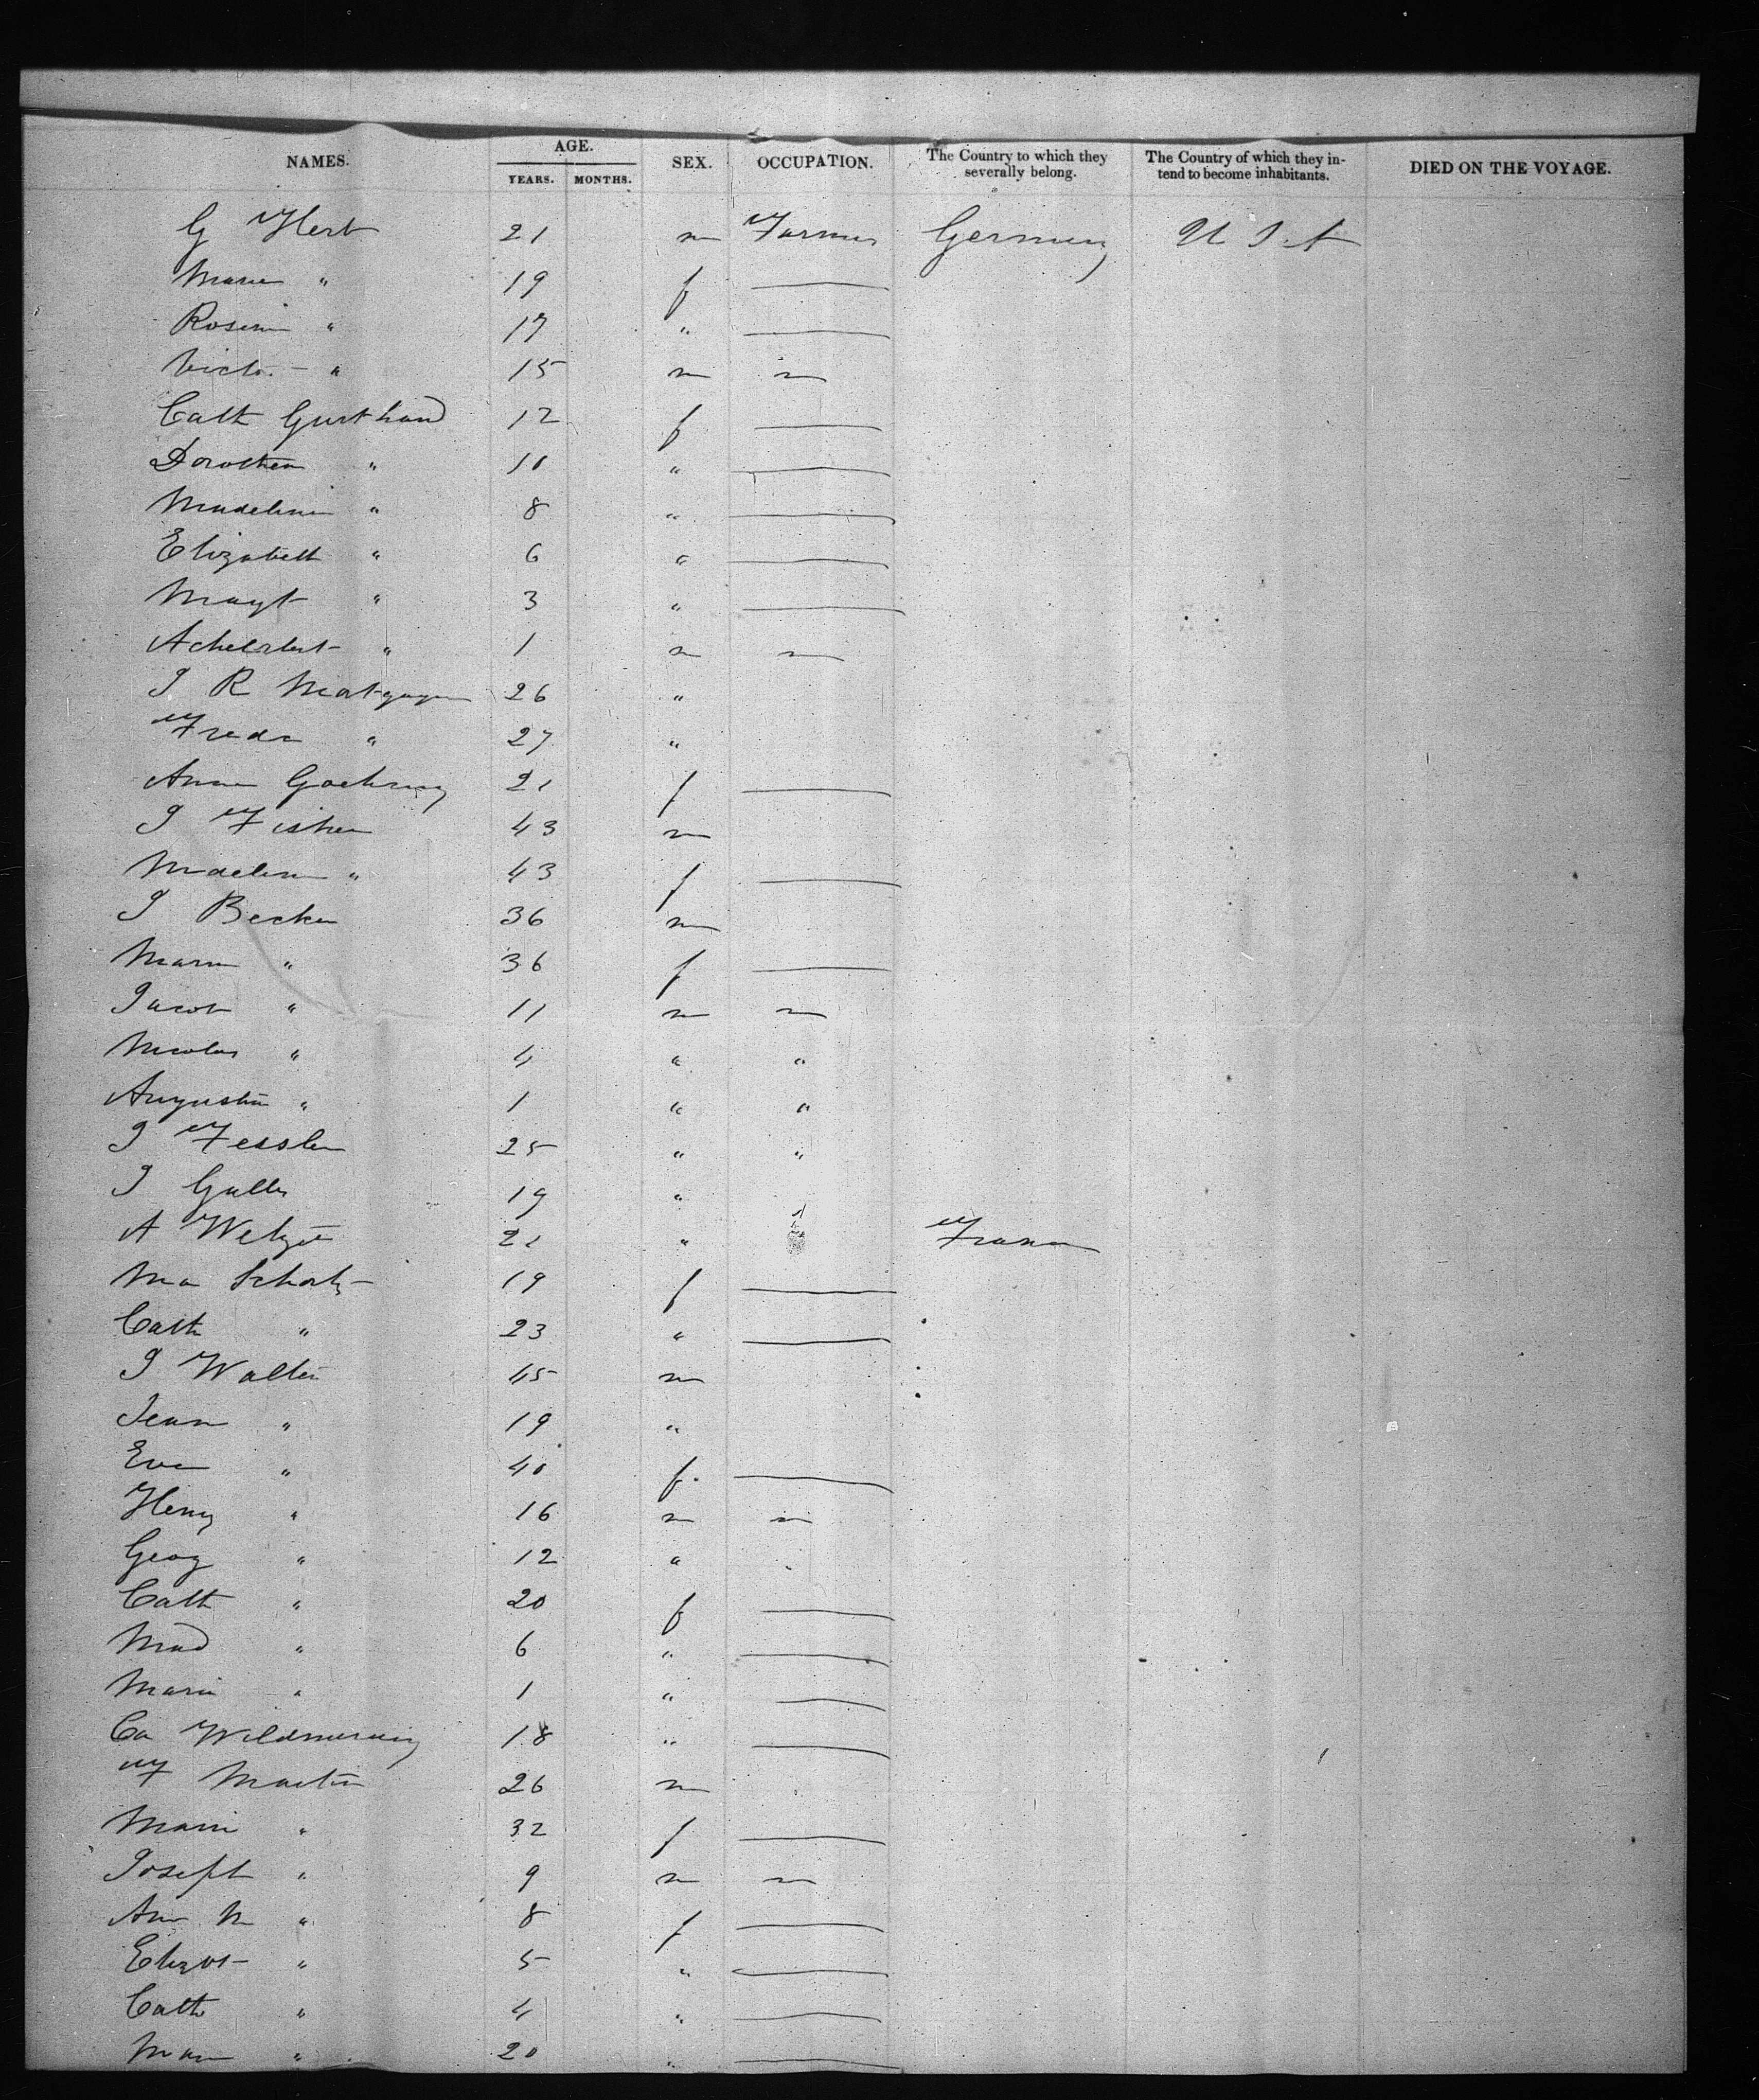 NAMES. AGE. YEARS. MONTHS. SEX. OCCUPATION. The Country to which they severally belong. The Country of which they intend to become inhabitants. DIED ON THE VOYAGE.
G Hert 21 m Farmer Germany U S A
Marie " 19 f
Rosina " 17 "
Victor - " 15 m m
Cath Gurthand 12 f
Dorothea " 10 "
Madeline " 8 "
Elizabeth " 6 "
Magt " 3 "
" 1 m m
J R 26 "
Fredr " 27 "
Anna Goehring 21 f
J Fisher 43 m
Madelin " 43 f
J Becker 36 m
Marie " 36 f
Jacob " 11 m m
Nicolas " 4 " "
Augustin " 1 " "
J Fessler 25 " "
J Galler 19 "
A 21 " France
Ma Schatz 19 f
Cath " 23 "
J Walter 45 m
Jean " 19 "
Eva " 40 f
Henry " 16 m m
Geog " 12 "
Cath " 20 f
Mad " 6 "
Marie " 1 "
Ca 18 "
F Martin 26 m
Marie " 32 f
Joseph " 9 m m
Ann M " 8 f
Elizbt " 5 "
Cath " 4 "
" 20 "